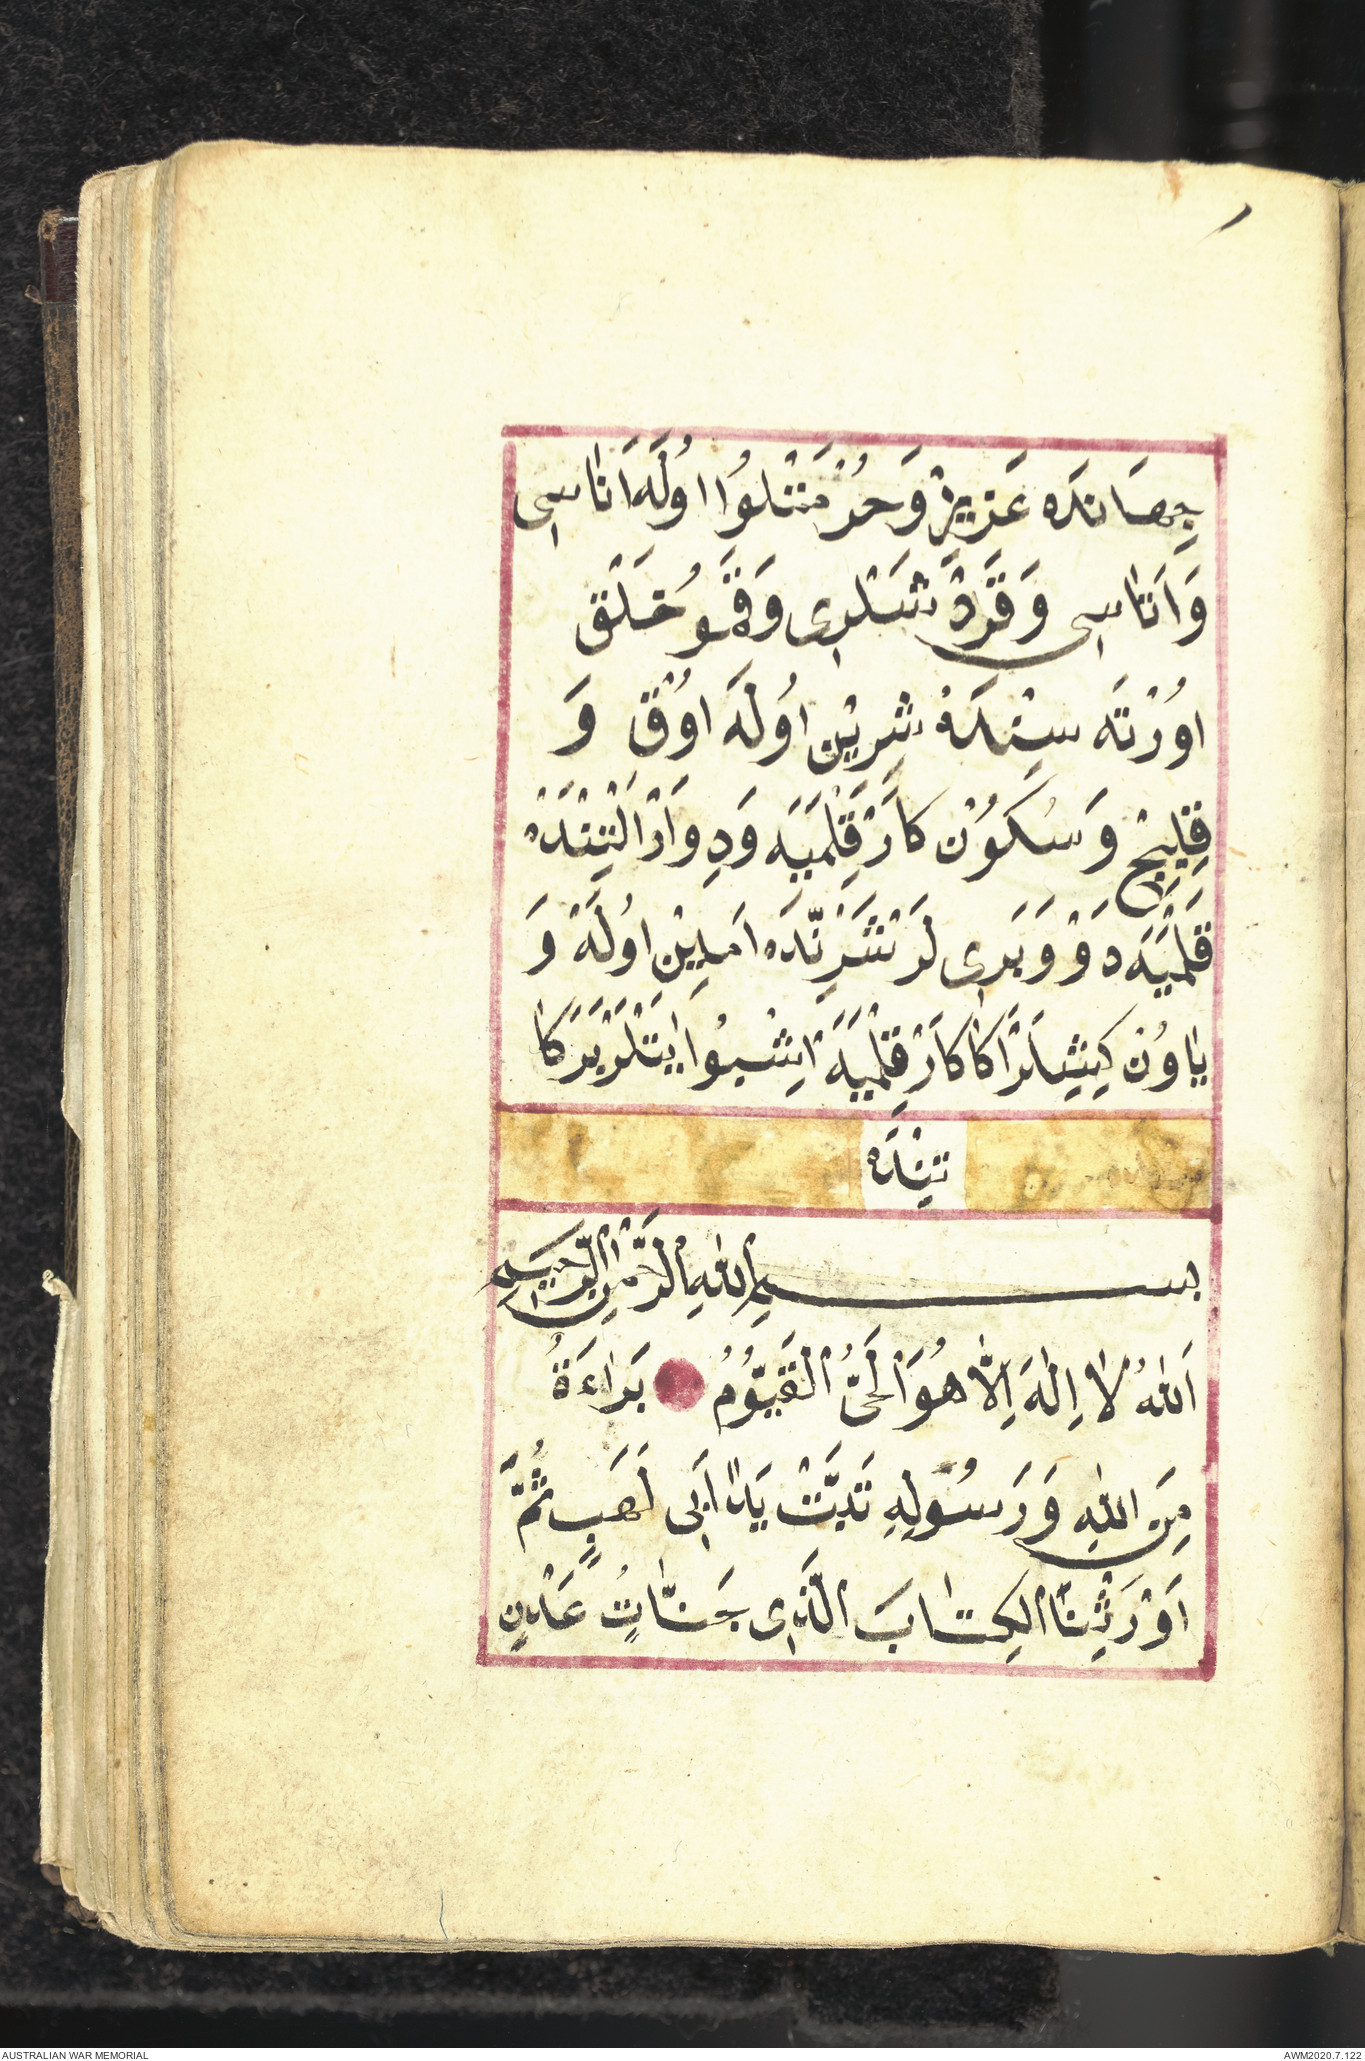 جِهَانْدَه عَزِيزْ وَحُرْمَتْلُوا اُولَه اَتَاسِی
وَاَنَاسِی وَقَرَدَشْلَرِی وَقَمُو خَلَقْ
اُورْتَه سِنْدَهْ شِرِيْنْ اُولَه اوُقْ وَ
قِلِيجْ وَسُكُوْنْ كَارْ قِلْمَيَه وَدِوَارْ اَلْتِنْدَهْ
قَلْمَيَه دَوْ وَپَرِی لَرْ شَرِنَّدَه اَمِيْنْ اُولَهْ وَ
يَاوُزْ كِيشِيلَرْ اَكَا كَارْ قِلْمَيَه اِشْبُوا اَيَتْلَرْ بَرَكَا
تِنْدَهْ
بِسْمِ اللهِ الرَّحْمٰنِ الرَّحِيمِ
اَللهُ لَا اِلٰهَ اِلَّا هُوَ اَلْحَیُّ الْقَيُّوْمُ بَرَاءَةٌ
مِنَ اللهِ وَرَسُولِهِ تَبَّتْ يَدَا اَبِی لَهَبٍ ثُمَّ
اَوْرَثْنَا الْكِتَابَ الَّذِی جَنَّاتُ عَدْنٍ
AUSTRALIAN WAR MEMORIAL
AWM2020.7.122